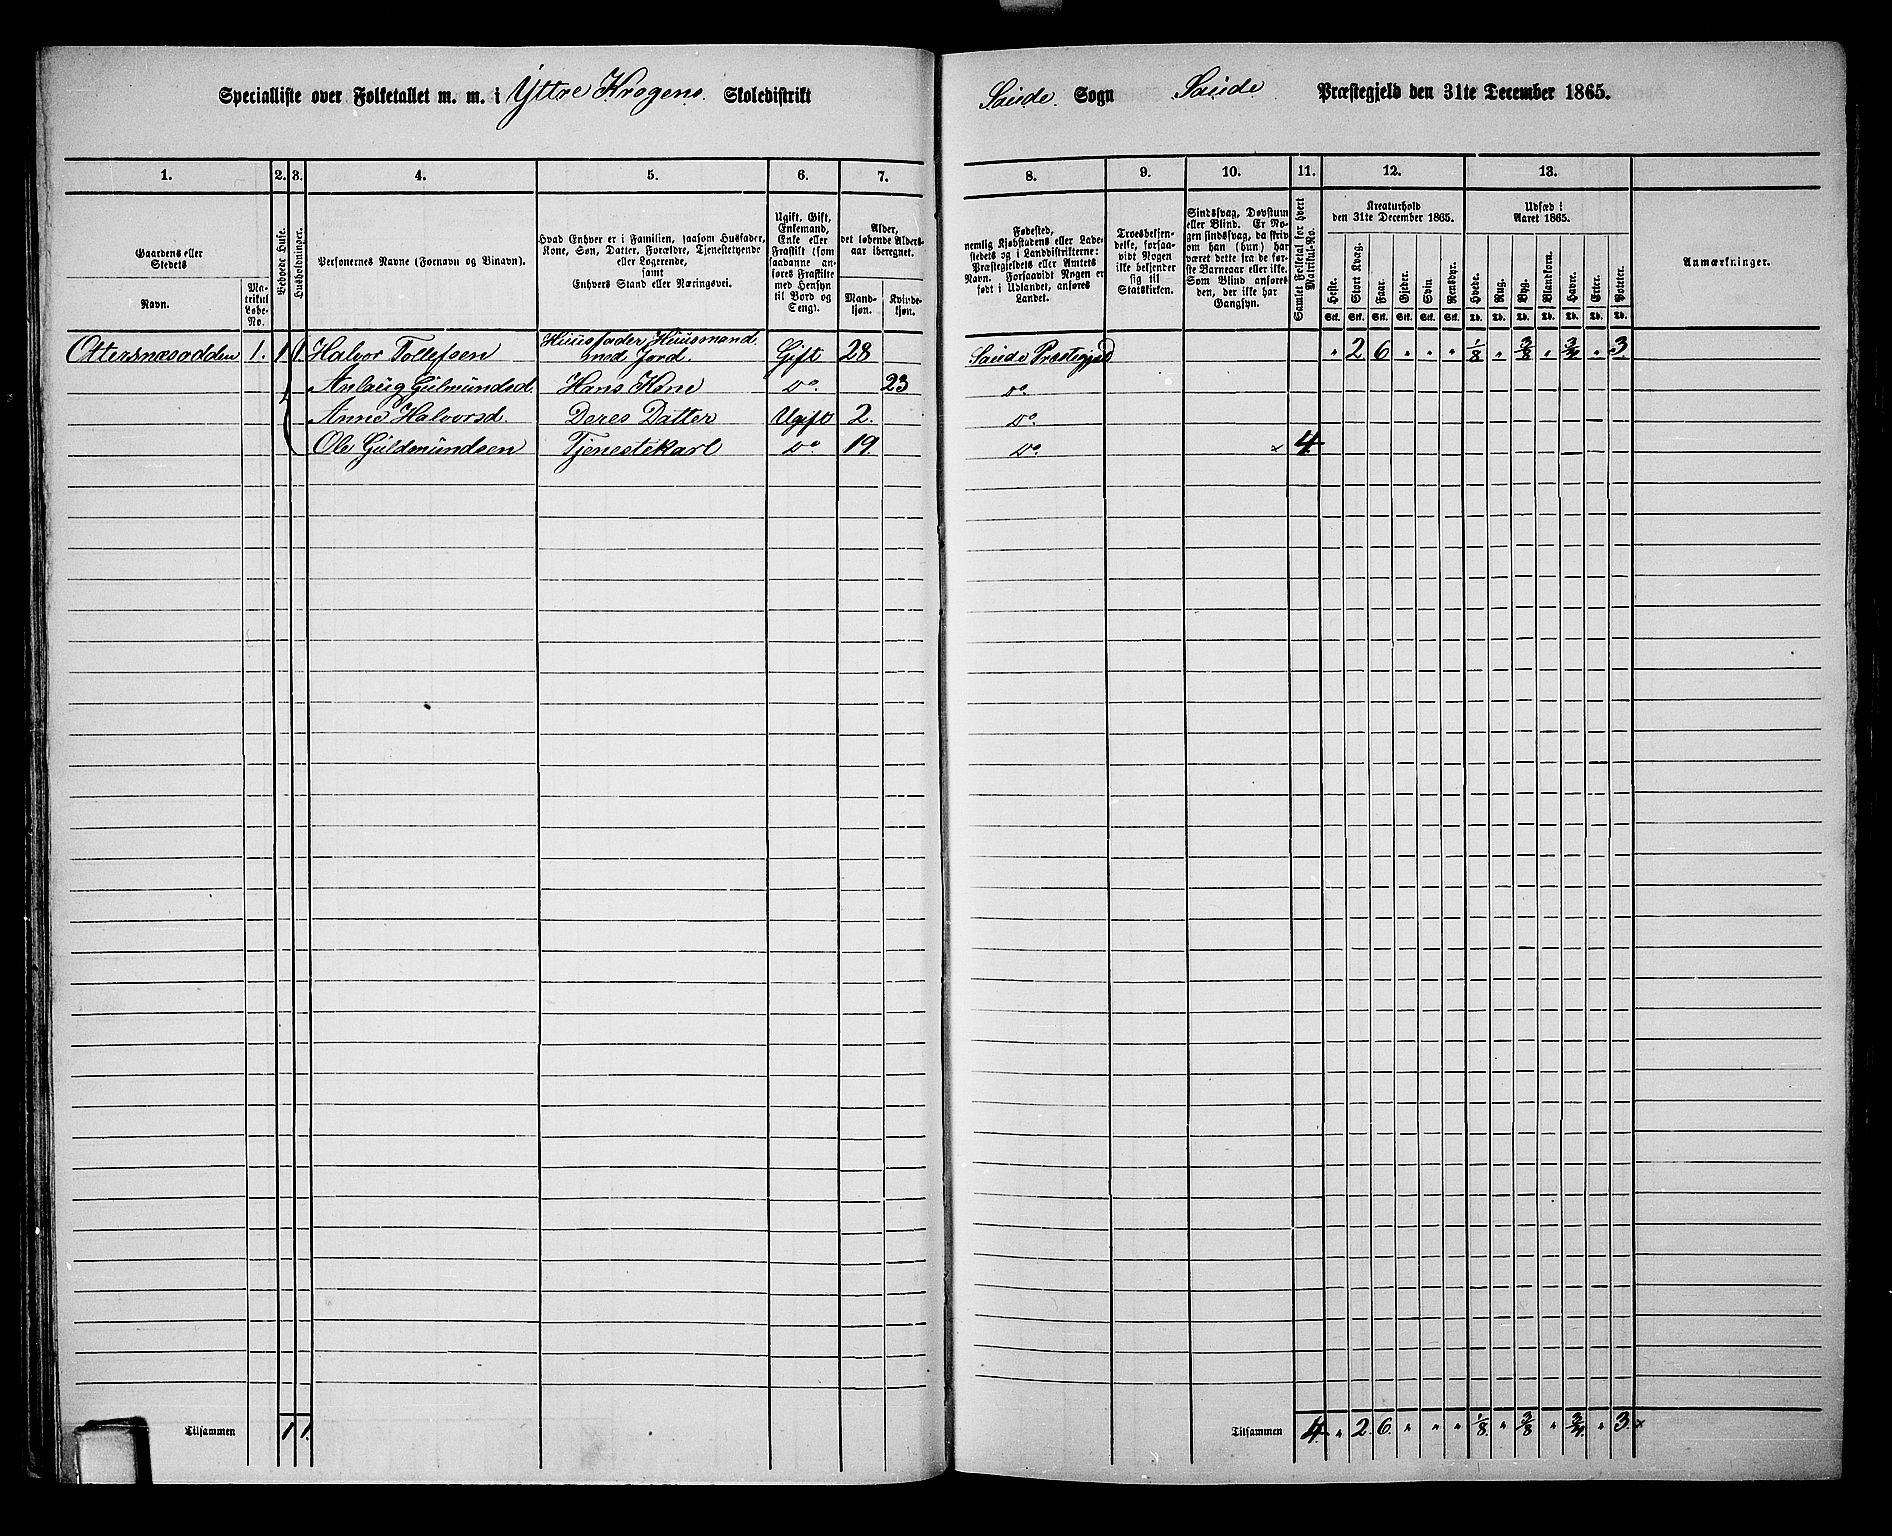 Specialliste over Folketallet m. m. i Yttre Kragens Skoledistrikt Saude Sogn Saude Præstegjeld den 31te December 1865.
1. 2. 3. 4. 5. 6. 7. 8. 9. 10. 11. 12. 13.
Gaardens eller Stedets
Navn.
Matrikul Løbe-No.
Beboede Huse.
Husholdninger.
Personernes Navne (Fornavn og Binavn).
Hvad Enhver er i Familien, saasom Husfader,
Kone, Søn, Datter, Forældre, Tjenestetyende
eller Logerende,
samt
Enhvers Stand eller Næringsvei.
Ugift, Gift,
Enkemand,
Enke eller
Fraskilt (som
saadanne an-
føres Fraskilte
med Hensyn
til Bord og
Seng).
Alder,
det løbende Alders-
aar iberegnet.
Mand-
kjøn.
Kvinde-
kjøn.
Fødested,
nemlig Kjøbstadens eller Lade-
stedets og i Landdistrikterne:
Præstegjeldets eller Amtets
Navn. Forsaavidt Nogen er
født i Udlandet, anføres
Landet.
Troesbekjen-
delse, forsaa-
vidt Nogen
ikke bekjender
sig til
Statskirken.
Sindssvag, Døvstum
eller Blind. Er No-
gen sindssvag, da skriv
om han (hun) har
været dette fra de før-
ste Barneaar eller ikke.
Som Blind anføres
den, der ikke har
Gangsyn.
Samlet Folketal for hvert Matrikul-No.
Kreaturhold
den 31te December 1865.
Heste. Stort Kvæg. Faar. Gjeder. Svin Rensdyr.
Stk. Stk. Stk. Stk. Stk. Stk.
Udsæd i
Aaret 1865.
Hvede. Rug. Byg. Blandkorn. Havre. Erter. Poteter.
Td. Td. Td. Td. Td. Td. Td.
Anmærkninger.
Ottersnæsodden 1. 1 1. Halvor Tollefsen Huusfader Huusmand med Jord. Gift 28 Saude Præstegjeld " 2 6 " " " 1/8 " 3/8 " 3/4 " 3
Aslaug Gulmundsd. Hans Kone Do 23 Do
Anne Halvorsd. Deres Datter Ugift 2. Do
Ole Guldmundsen Tjenestekarl Do 19. Do × 4
Tilsammen 1 1. Tilsammen 4 " 2 6 " " " 1/8 " 3/8 " 3/4 " 3 ×